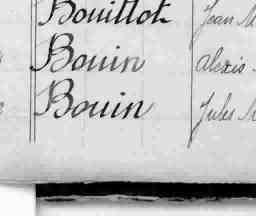 Bouillot Jean M
Bouin Alexis
Bouin Jules M